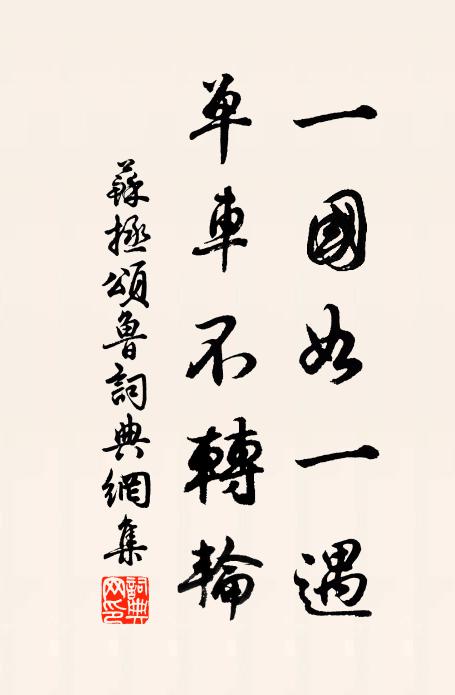 一國如一遇
單車不轉輪
蘇拯頌魯詞典網集
詞典
网印